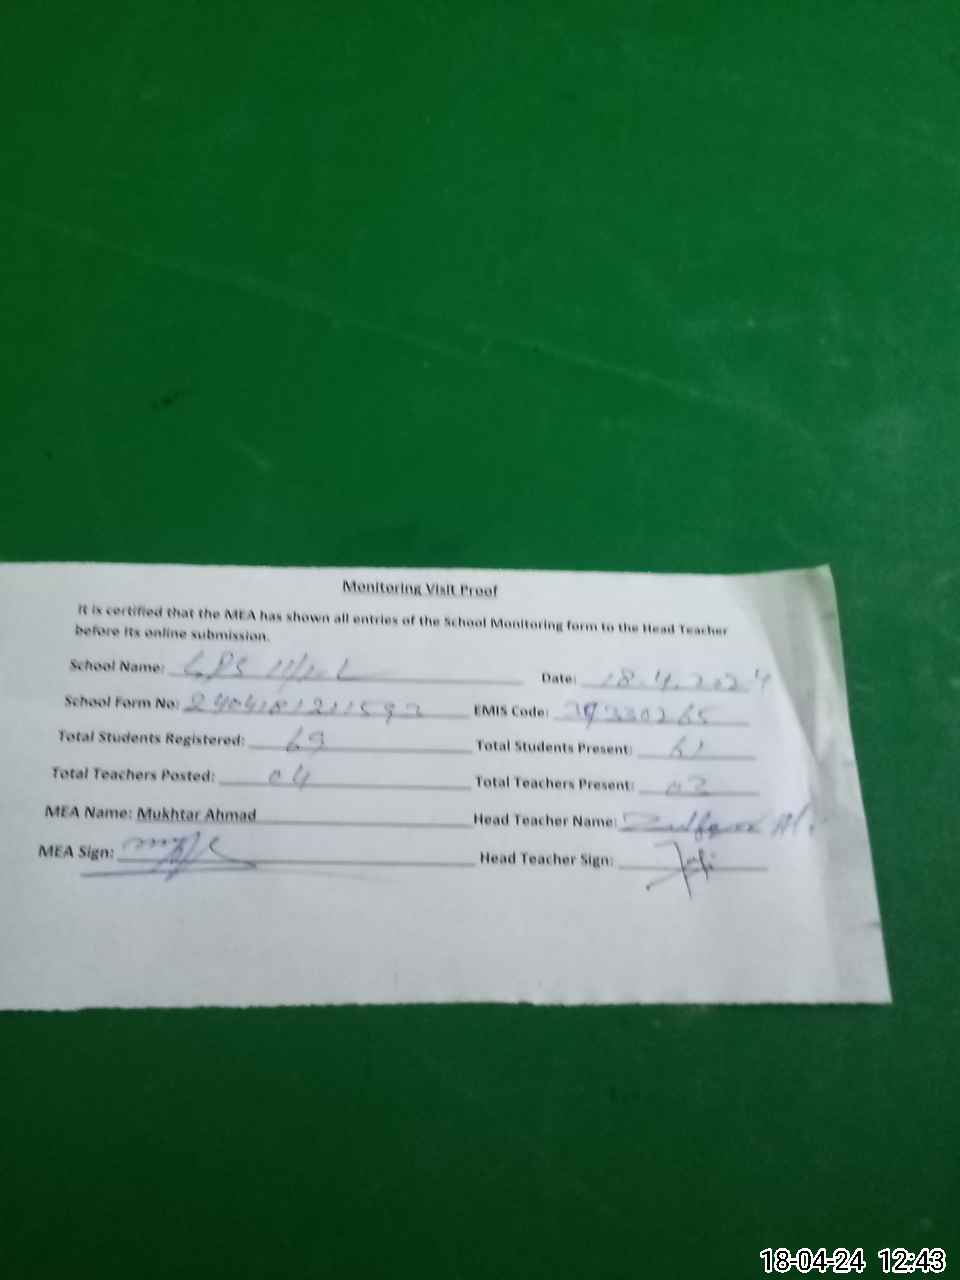 Monitoring Visit Proof
It is certified that the MEA has shown all entries of the School Monitoring form to the Head Teacher
before its online submission.
School Name: GPS 11/1-L Date: 18.4.2024
School Form No: EMIS Code:
Total Students Registered: 69 Total Students Present: 61
Total Teachers Posted: 04 Total Teachers Present: 03
MEA Name: Mukhtar Ahmad Head Teacher Name:
MEA Sign: Head Teacher Sign:
18-04-24 12:43